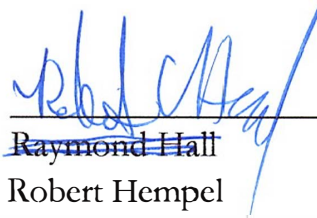 Raymond Hall
Robert Hempel